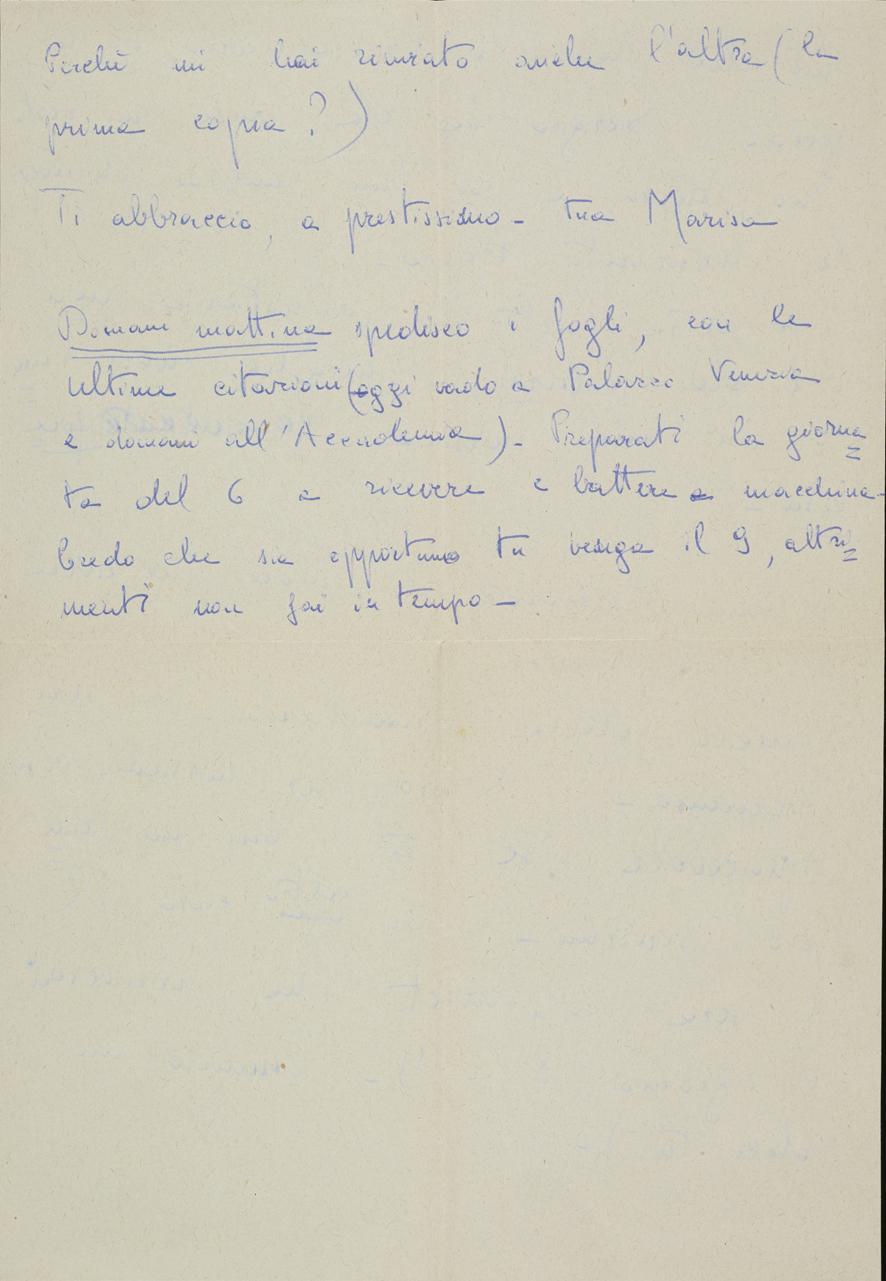 Perchè mi hai rinviato anche l'altra (la
prima copia?)
Ti abbraccio, a prestissimo - tua Marisa
Domani mattina spedisco i fogli, con le
ultime citazioni (oggi vado a Palazzo Venezia
e domani all'Accademia) - Preparati la giorna=
ta del 6 a ricevere e battere a macchina -
Credo che sia opportuno tu venga il 9, altri=
menti non fai in tempo -